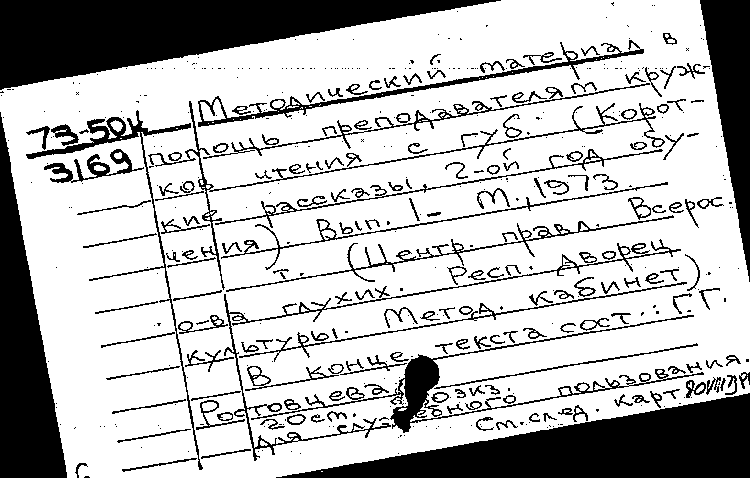 73-50к
3169
Методический материал в
помощь преподавателям круж-
ков чтения с губ. (Корот-
кие рассказы, 2-ой год обу-
чения). Вып. 1- М., 1973
т. (Центр. правл. Всерос.
о-ва глухих. Респ. Дворец
культуры. Метод. кабинет).
В конце текста сост.: Г.Г.
Ростовцева
экз.
20 ст.
Для служебного пользования.
См. след. карт